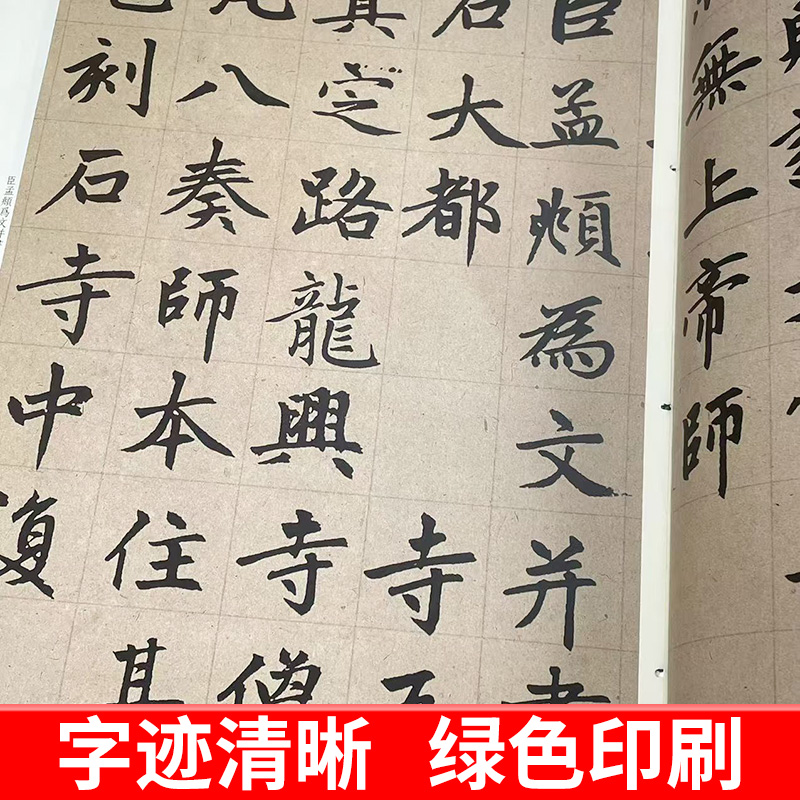 無上帝師
臣孟頫為文并
石大都寺
真定路龍興寺僧
八奏師本住其
刻石寺中復
臣孟頫爲文并
字迹清晰 绿色印刷